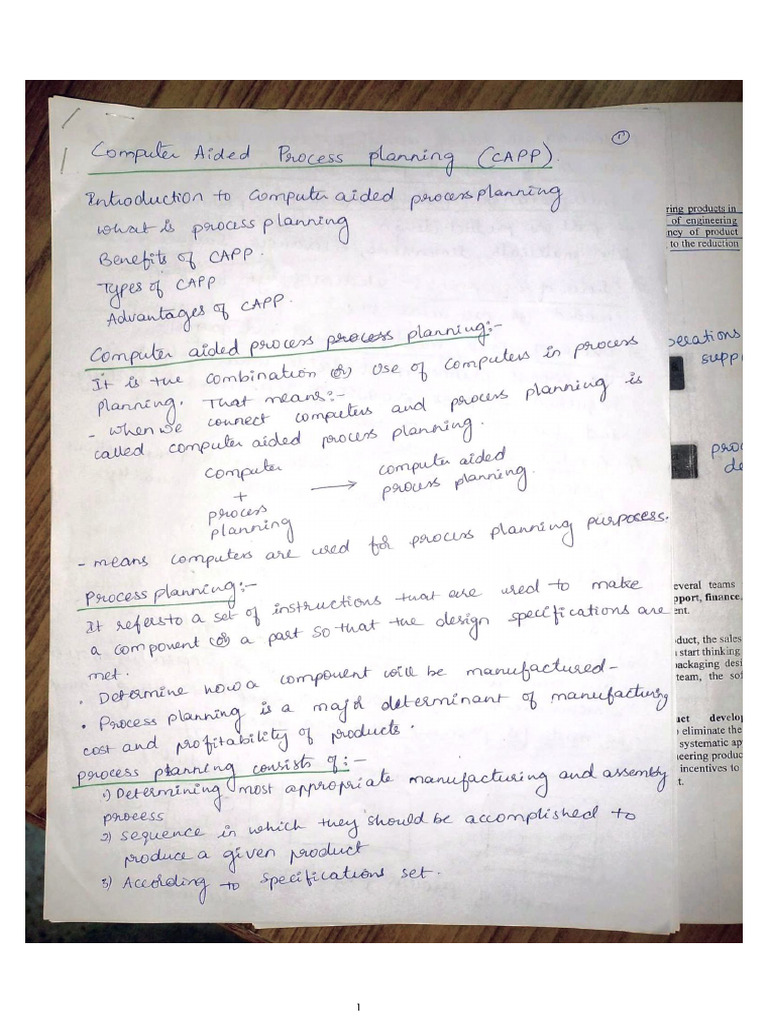 1
Computer Aided Process planning (CAPP).
Introduction to computer aided process planning
what is process planning
Benefits of CAPP.
Types of CAPP
Advantages of CAPP.
Computer aided process process planning:-
It is the combination (or) use of computers in process
planning. That means:-
- when we connect computers and process planning is
called computer aided process planning.
computer
+
process
planning
→ computer aided
process planning.
- means computers are used for process planning purposes.
Process planning:-
It refers to a set of instructions that are used to make
a component (or) a part so that the design specifications are
met.
• Determine how a component will be manufactured-
• Process planning is a major determinant of manufacturing
cost and profitability of products.
process planning consists of:-
1) Determining most appropriate manufacturing and assembly
process
2) sequence in which they should be accomplished to
produce a given product
3) According to specifications set.
ring products in
of engineering
ncy of product
to the reduction
perations
supp
proc
de
everal teams
pport, finance,
ent.
duct, the sales
start thinking
ackaging desi
team, the sof
act develop
eliminate the
systematic ap
neering produc
incentives to
t.
1